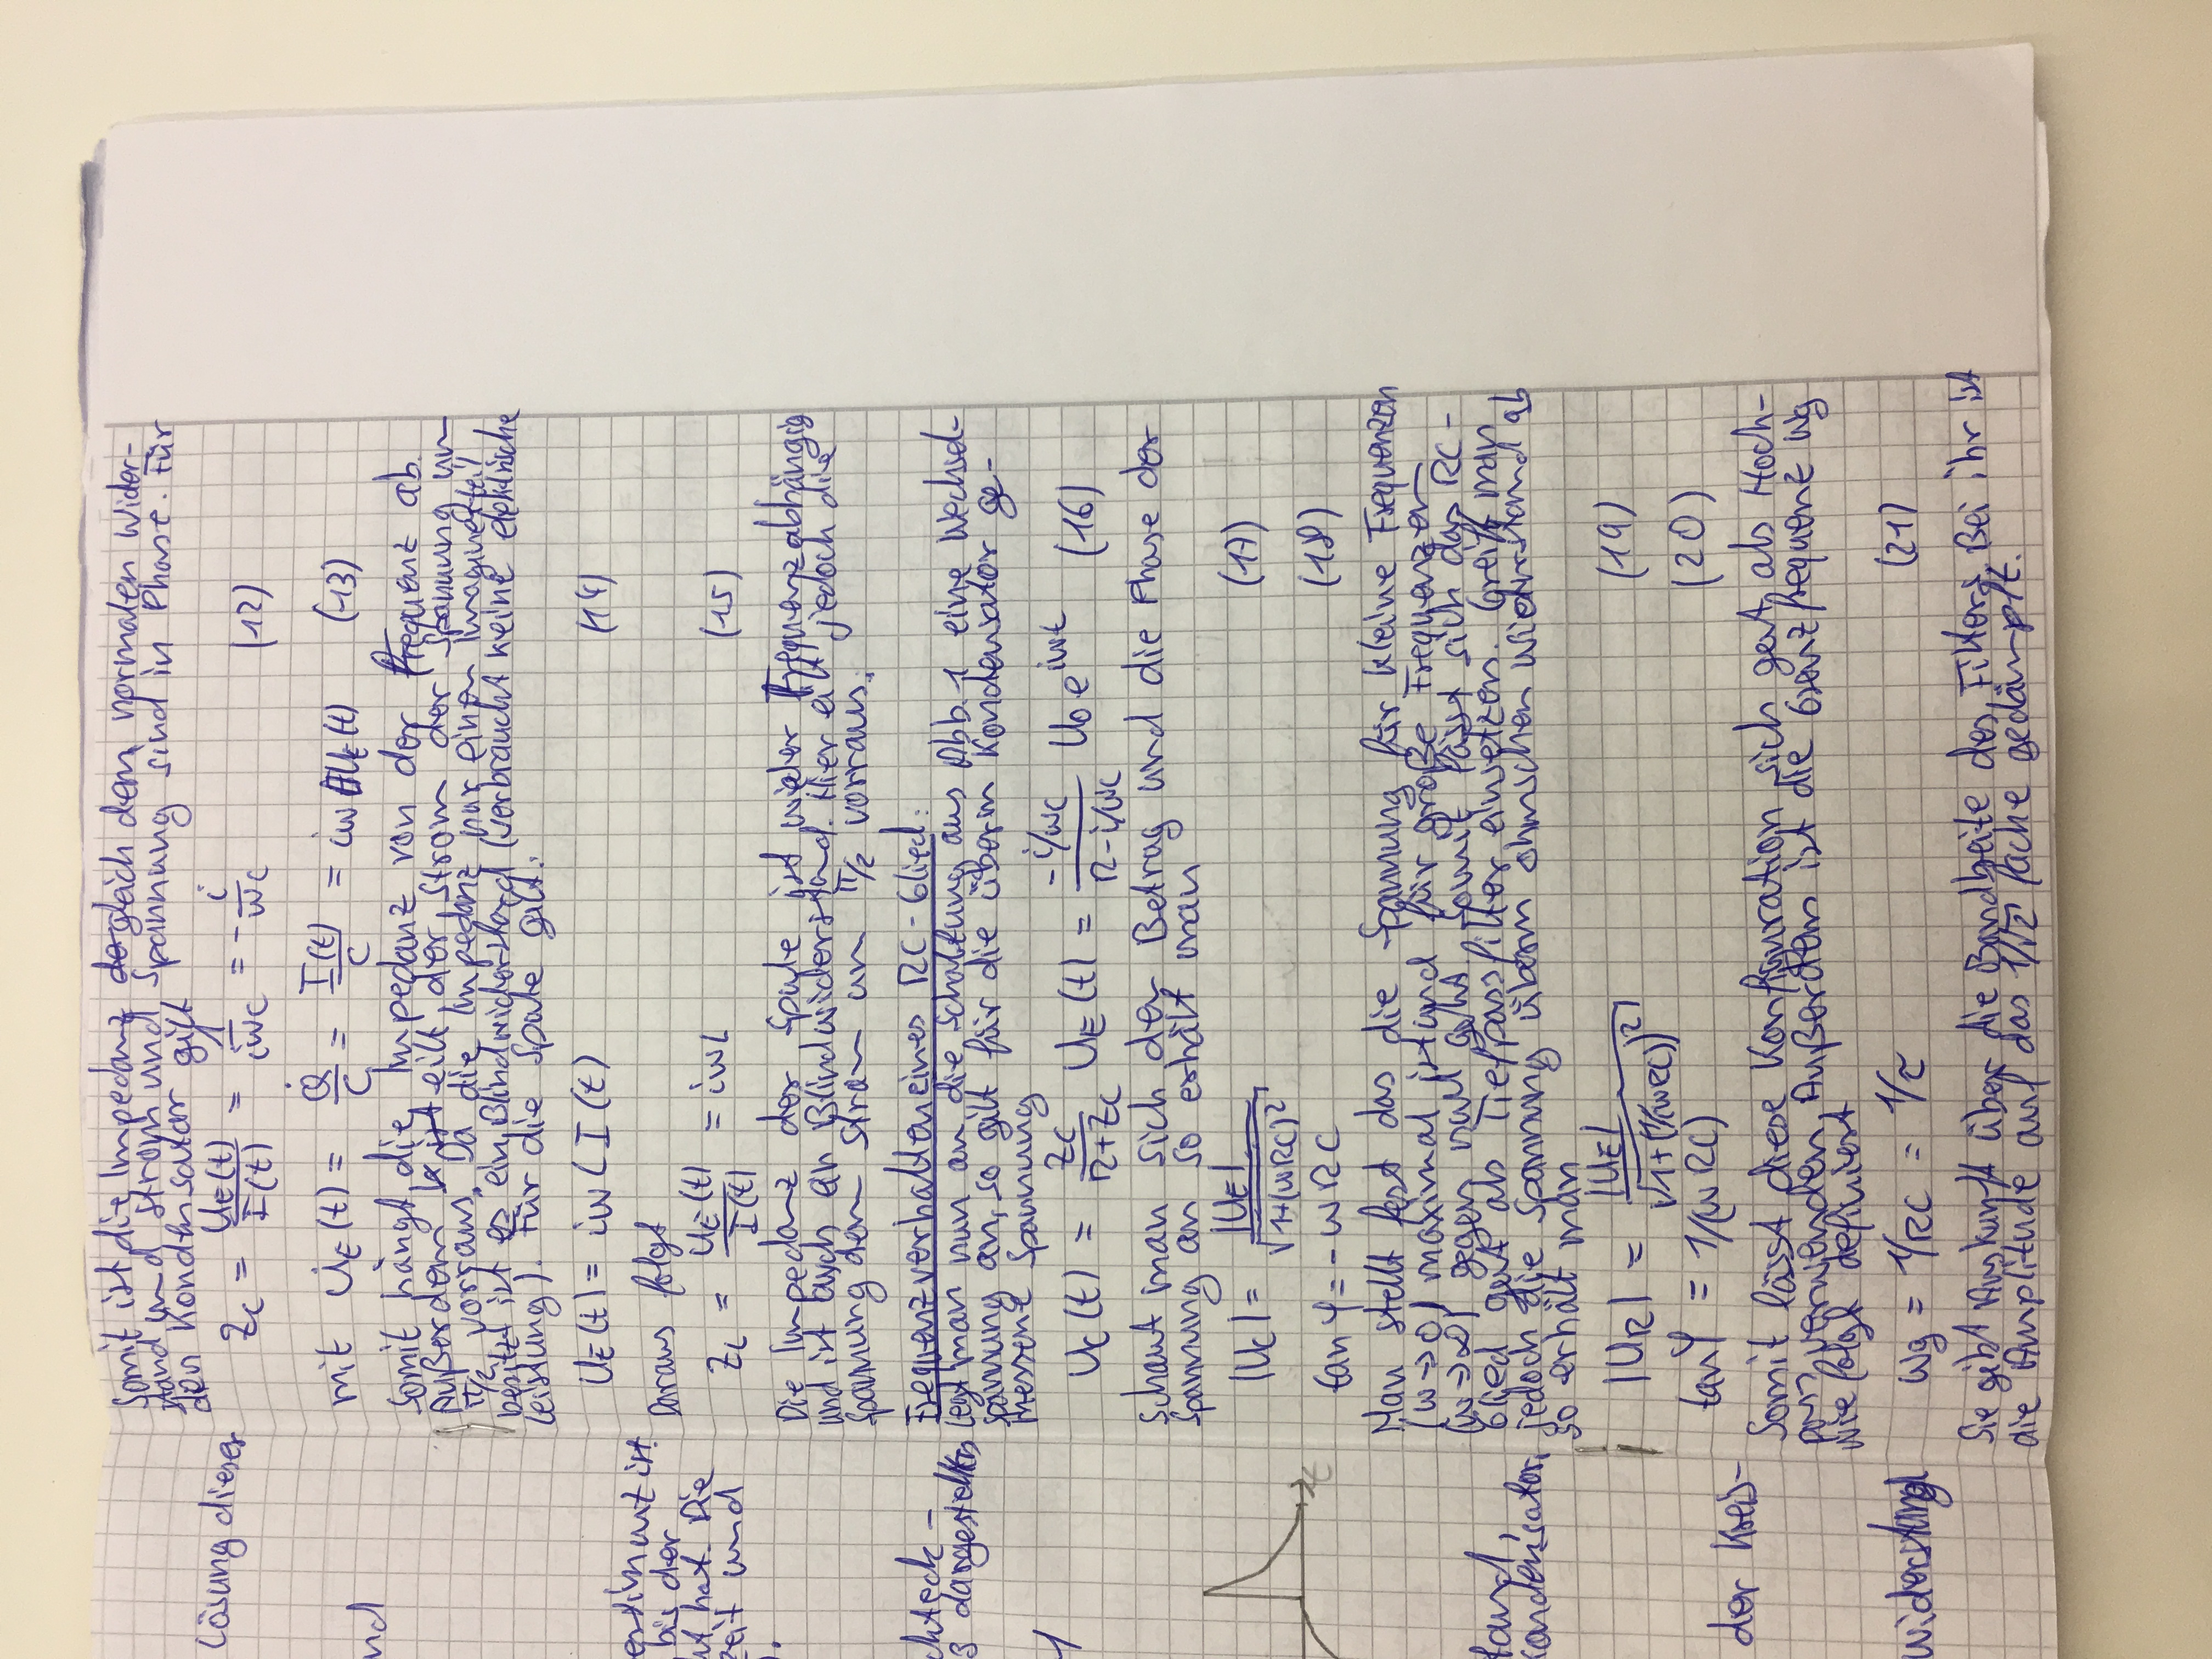 Lösung dieser
nd
bis der
nt hat. Die
zeit und
).
chteck-
3 dargestelltes
1
t
tand,
Kondensator,
der Kreis-
widerstand
Somit ist die Impedanz gleich dem normalen Wider-
stand und Strom und Spannung sind in Phase. Für
den Kondensator gilt
Z_C = U_E(t)/I(t) = 1/iωC = -i/ωC (12)
mit U̇_E(t) = Q̇/C = I(t)/C = iω U_E(t) (13)
Somit hängt die Impedanz von der Frequenz ab.
Außerdem eilt der Strom der Spannung um
π/2 vorraus. Da die Impedanz nur einen Imaginärteil
besitzt ist es ein Blindwiderstand (verbraucht keine elektrische
Leistung). Für die Spule gilt:
U_E(t) = iωL I(t) (14)
Daraus folgt
Z_L = U_E(t)/I(t) = iωL (15)
Die Impedanz der Spule ist wieder Frequenzabhängig
und ist auch ein Blindwiderstand. Hier eilt jedoch die
Spannung dem Strom um π/2 vorraus.
Frequenzverhalten eines RC-Glied:
Legt man nun an die Schaltung aus Abb. 1 eine Wechsel-
spannung an, so gilt für die überm Kondensator ge-
messene Spannung
U_C(t) = Z_C/(R+Z_C) U_E(t) = (-i/ωC)/(R-i/ωC) U_0 e^{iωt} (16)
Schaut man sich den Betrag und die Phase der
Spannung an so erhält man
|U_C| = |U_E|/√(1+(ωRC)²) (17)
tan φ = -ωRC (18)
Man stellt fest das die Spannung für kleine Frequenzen
(ω→0) maximal ist und für große Frequenzen
(ω→∞) gegen null geht. Somit lässt sich das RC-
Glied gut als Tiefpassfilter einsetzen. Greift man
jedoch die Spannung überm ohmschen Widerstand ab
so erhält man
|U_R| = |U_E|/√(1+(1/(ωRC))²) (19)
tan φ = 1/(ωRC) (20)
Somit lässt diese Konfiguration sich gut als Hoch-
pass verwenden. Außerdem ist die Grenzfrequenz ωg
wie folgt definiert
ωg = 1/RC = 1/τ (21)
Sie gibt Auskunft über die Bandbreite des Filters. Bei ihr ist
die Amplitude auf das 1/√2 fache gedämpft.